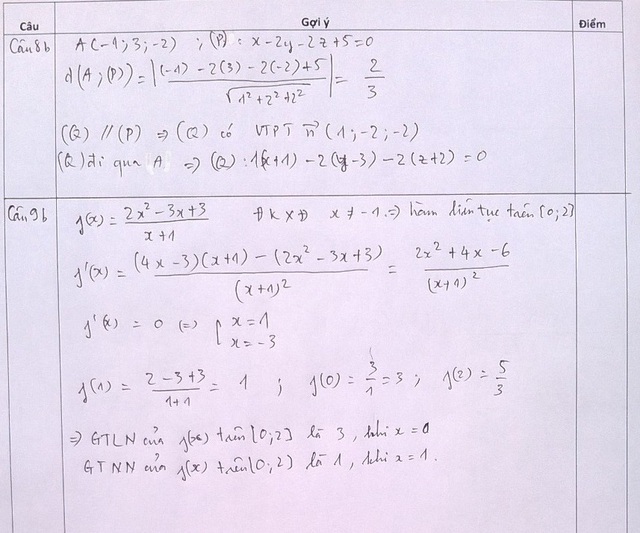 Câu Gợi ý Điểm
Câu 8b A(-1; 3; -2) ; (P): x - 2y - 2z + 5 = 0
d(A; (P)) = |((-1) - 2(3) - 2(-2) + 5) / √(1² + 2² + 2²)| = 2/3
(Q) // (P) => (Q) có VTPT n⃗ (1; -2; -2)
(Q) đi qua A => (Q): 1(x+1) - 2(y-3) - 2(z+2) = 0
Câu 9b f(x) = (2x² - 3x + 3) / (x + 1) ĐKXĐ x ≠ -1 => hàm liên tục trên [0; 2]
f'(x) = ((4x - 3)(x+1) - (2x² - 3x + 3)) / (x+1)² = (2x² + 4x - 6) / (x+1)²
f'(x) = 0 (=) [ x = 1
x = -3
f(1) = (2 - 3 + 3) / (1+1) = 1 ; f(0) = 3/1 = 3 ; f(2) = 5/3
=> GTLN của f(x) trên [0; 2] là 3, khi x = 0
GTNN của f(x) trên [0; 2] là 1, khi x = 1.